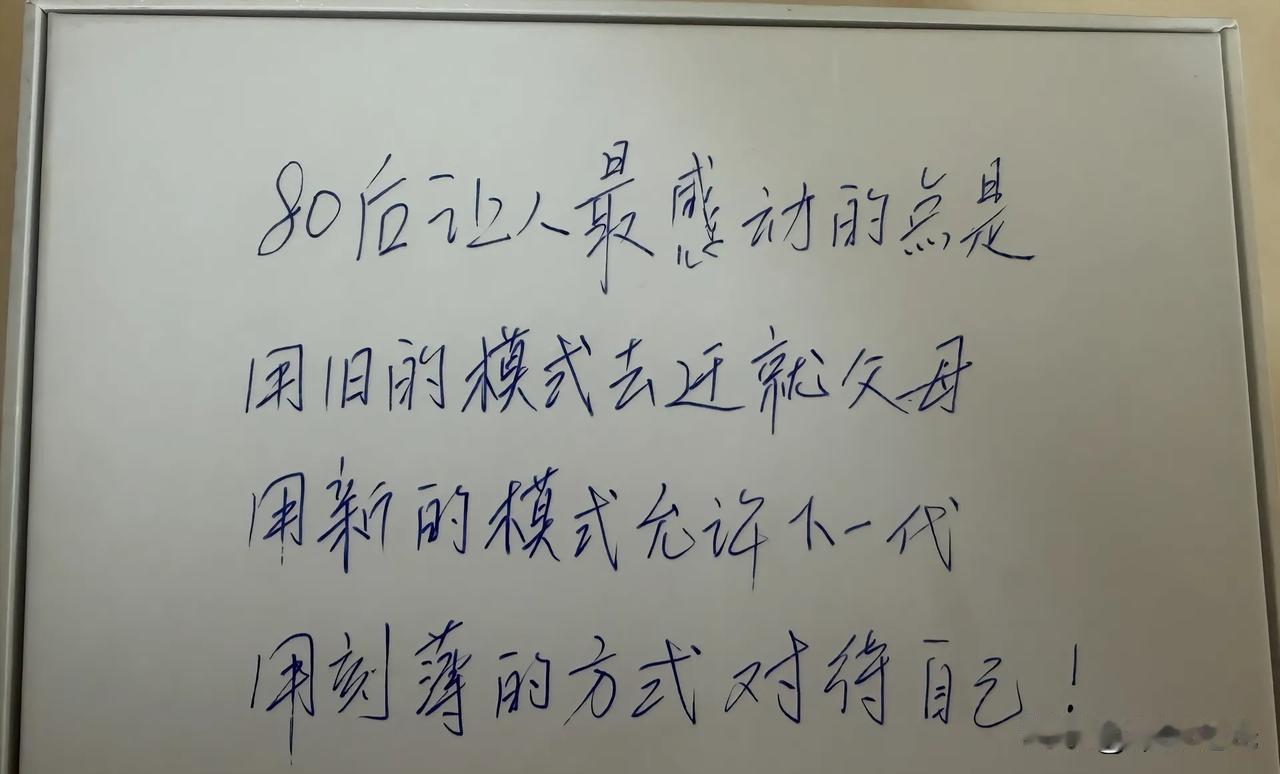 80后让人最感动的点是
用旧的模式去迁就父母
用新的模式允许下一代
用刻薄的方式对待自己！